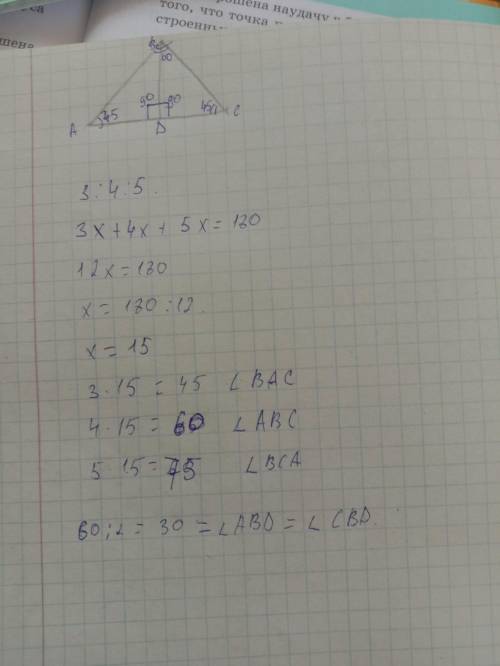 рошена наудачу
того, что точка
строенны
шена
60
90 90
45
45
A
D
C
3:4:5.
3x+4x+5x=180
12x=180
x=180:12.
x=15
3·15=45 ∠BAC
4·15=60 ∠ABC
5 15=75 ∠BCA
60:2=30=∠ABD=∠CBD.